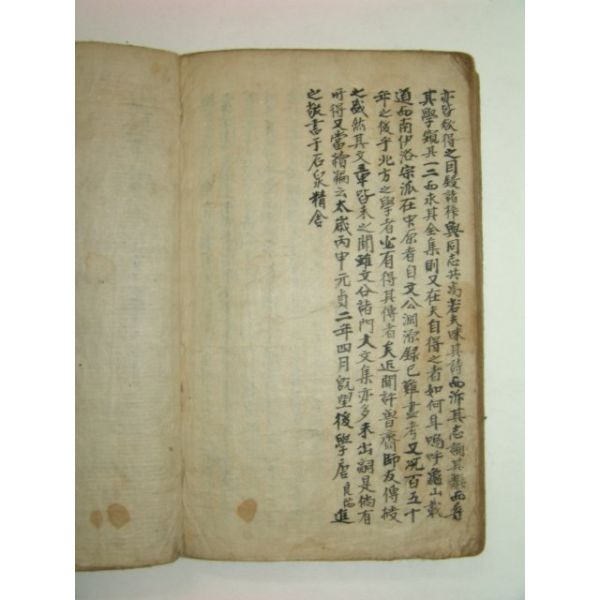 亦皆欲得之因鋟諸梓與同志共焉若夫味其詩而泝其志誦其辭而尋
其學窺其一二而求其全集則又在夫自得之者如何耳嗚呼龜山載
道而南伊洛宗派在中原者自文公淵源録已難盡考又况百五十
年之後乎北方之學者必有得其傳者矣近聞許魯齋師友傳授
之盛然其文章皆未之聞雖文公諸門人文集亦多未出嗣是倘有
所得又當續編云太歲丙申元貞二年四月旣望後學唐良瑞進
之敬書于石泉精舍